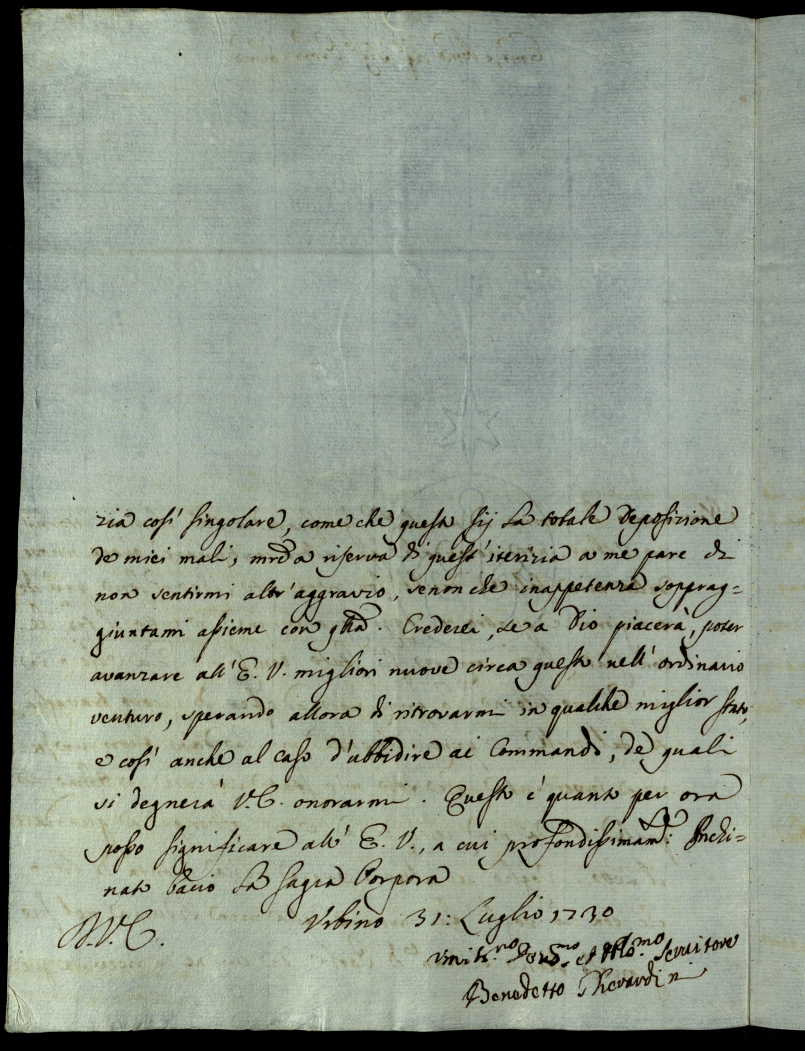 zia così singolare, come che questa sij la totale Deposizione
de miei mali, mrẽ a riserva di quest'iterizia a me pare di
non sentirmi altr'aggravio, se non che inappetenza soprag=
giuntami assieme con qũa. Crederei, se a Dio piacerà, poter
avanzare all'E. V. migliori nuove circa questo nell'ordinario
venturo, sperando allora di ritrovarmi in qualche miglior stato,
e così anche al caso d'ubbidire ai Commandi, de quali
si degnerà V.E. onorarmi. Questo è quanto per ora
posso significare all'E. V., a cui profondissimam.te Inchi=
nato bacio la Sagra Porpora
D.V.E. Urbino 31: Luglio 1730
Umil.mo Dev.mo et Obl.mo Servitore
Benedetto